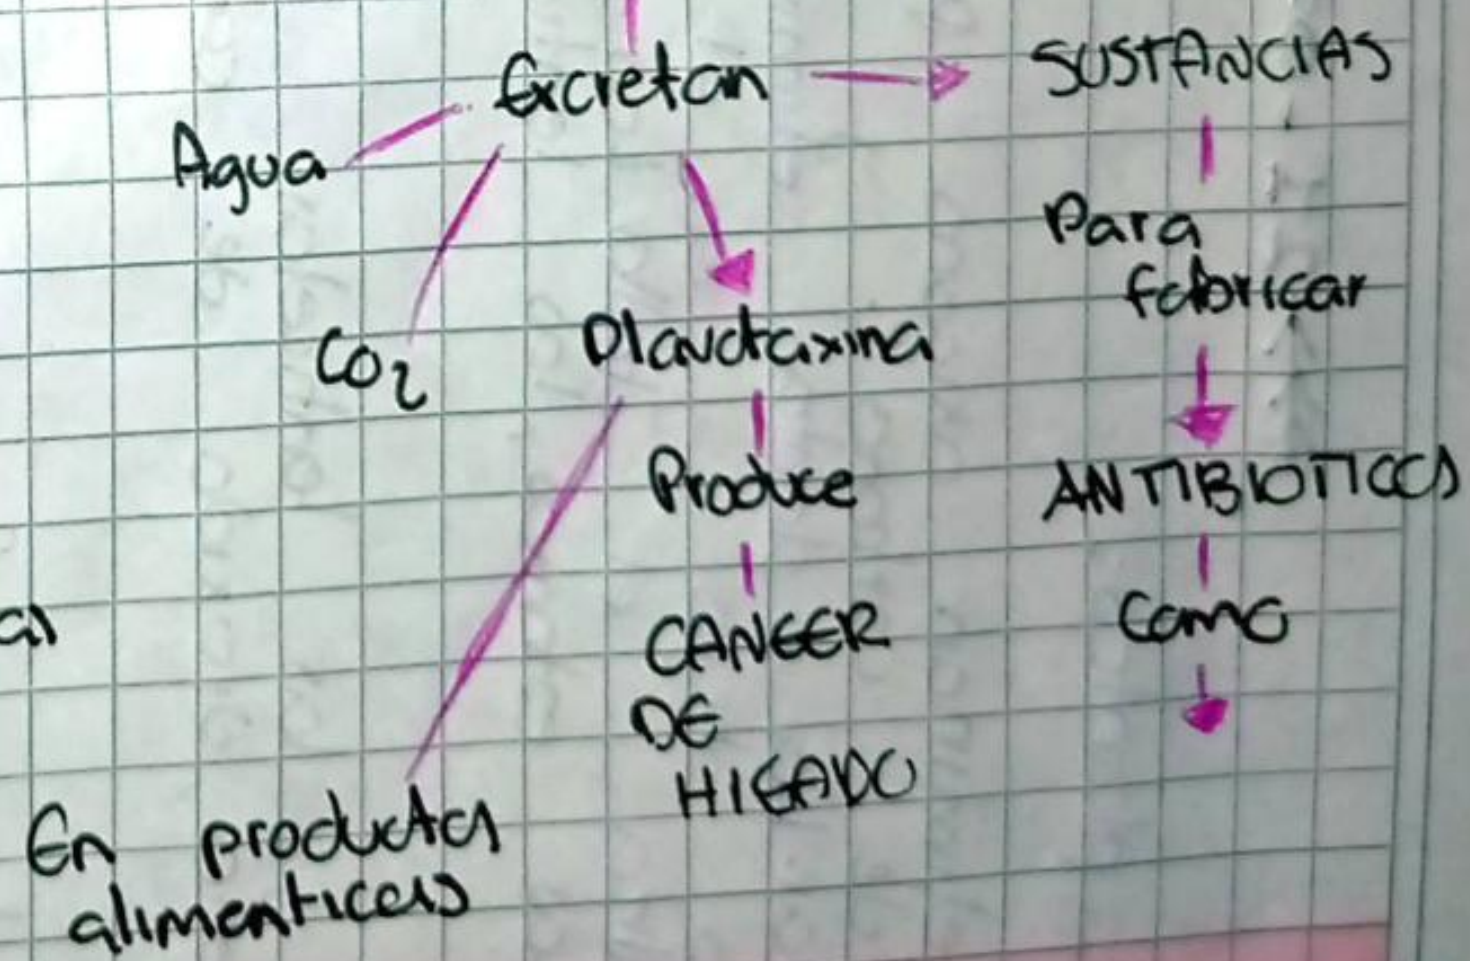 Excretan
SUSTANCIAS
Agua
Para
fabricar
CO2
Plavotaxina
Produce
ANTIBIOTICOS
CANCER
Como
DE
HIGADO
En productos
alimenticios